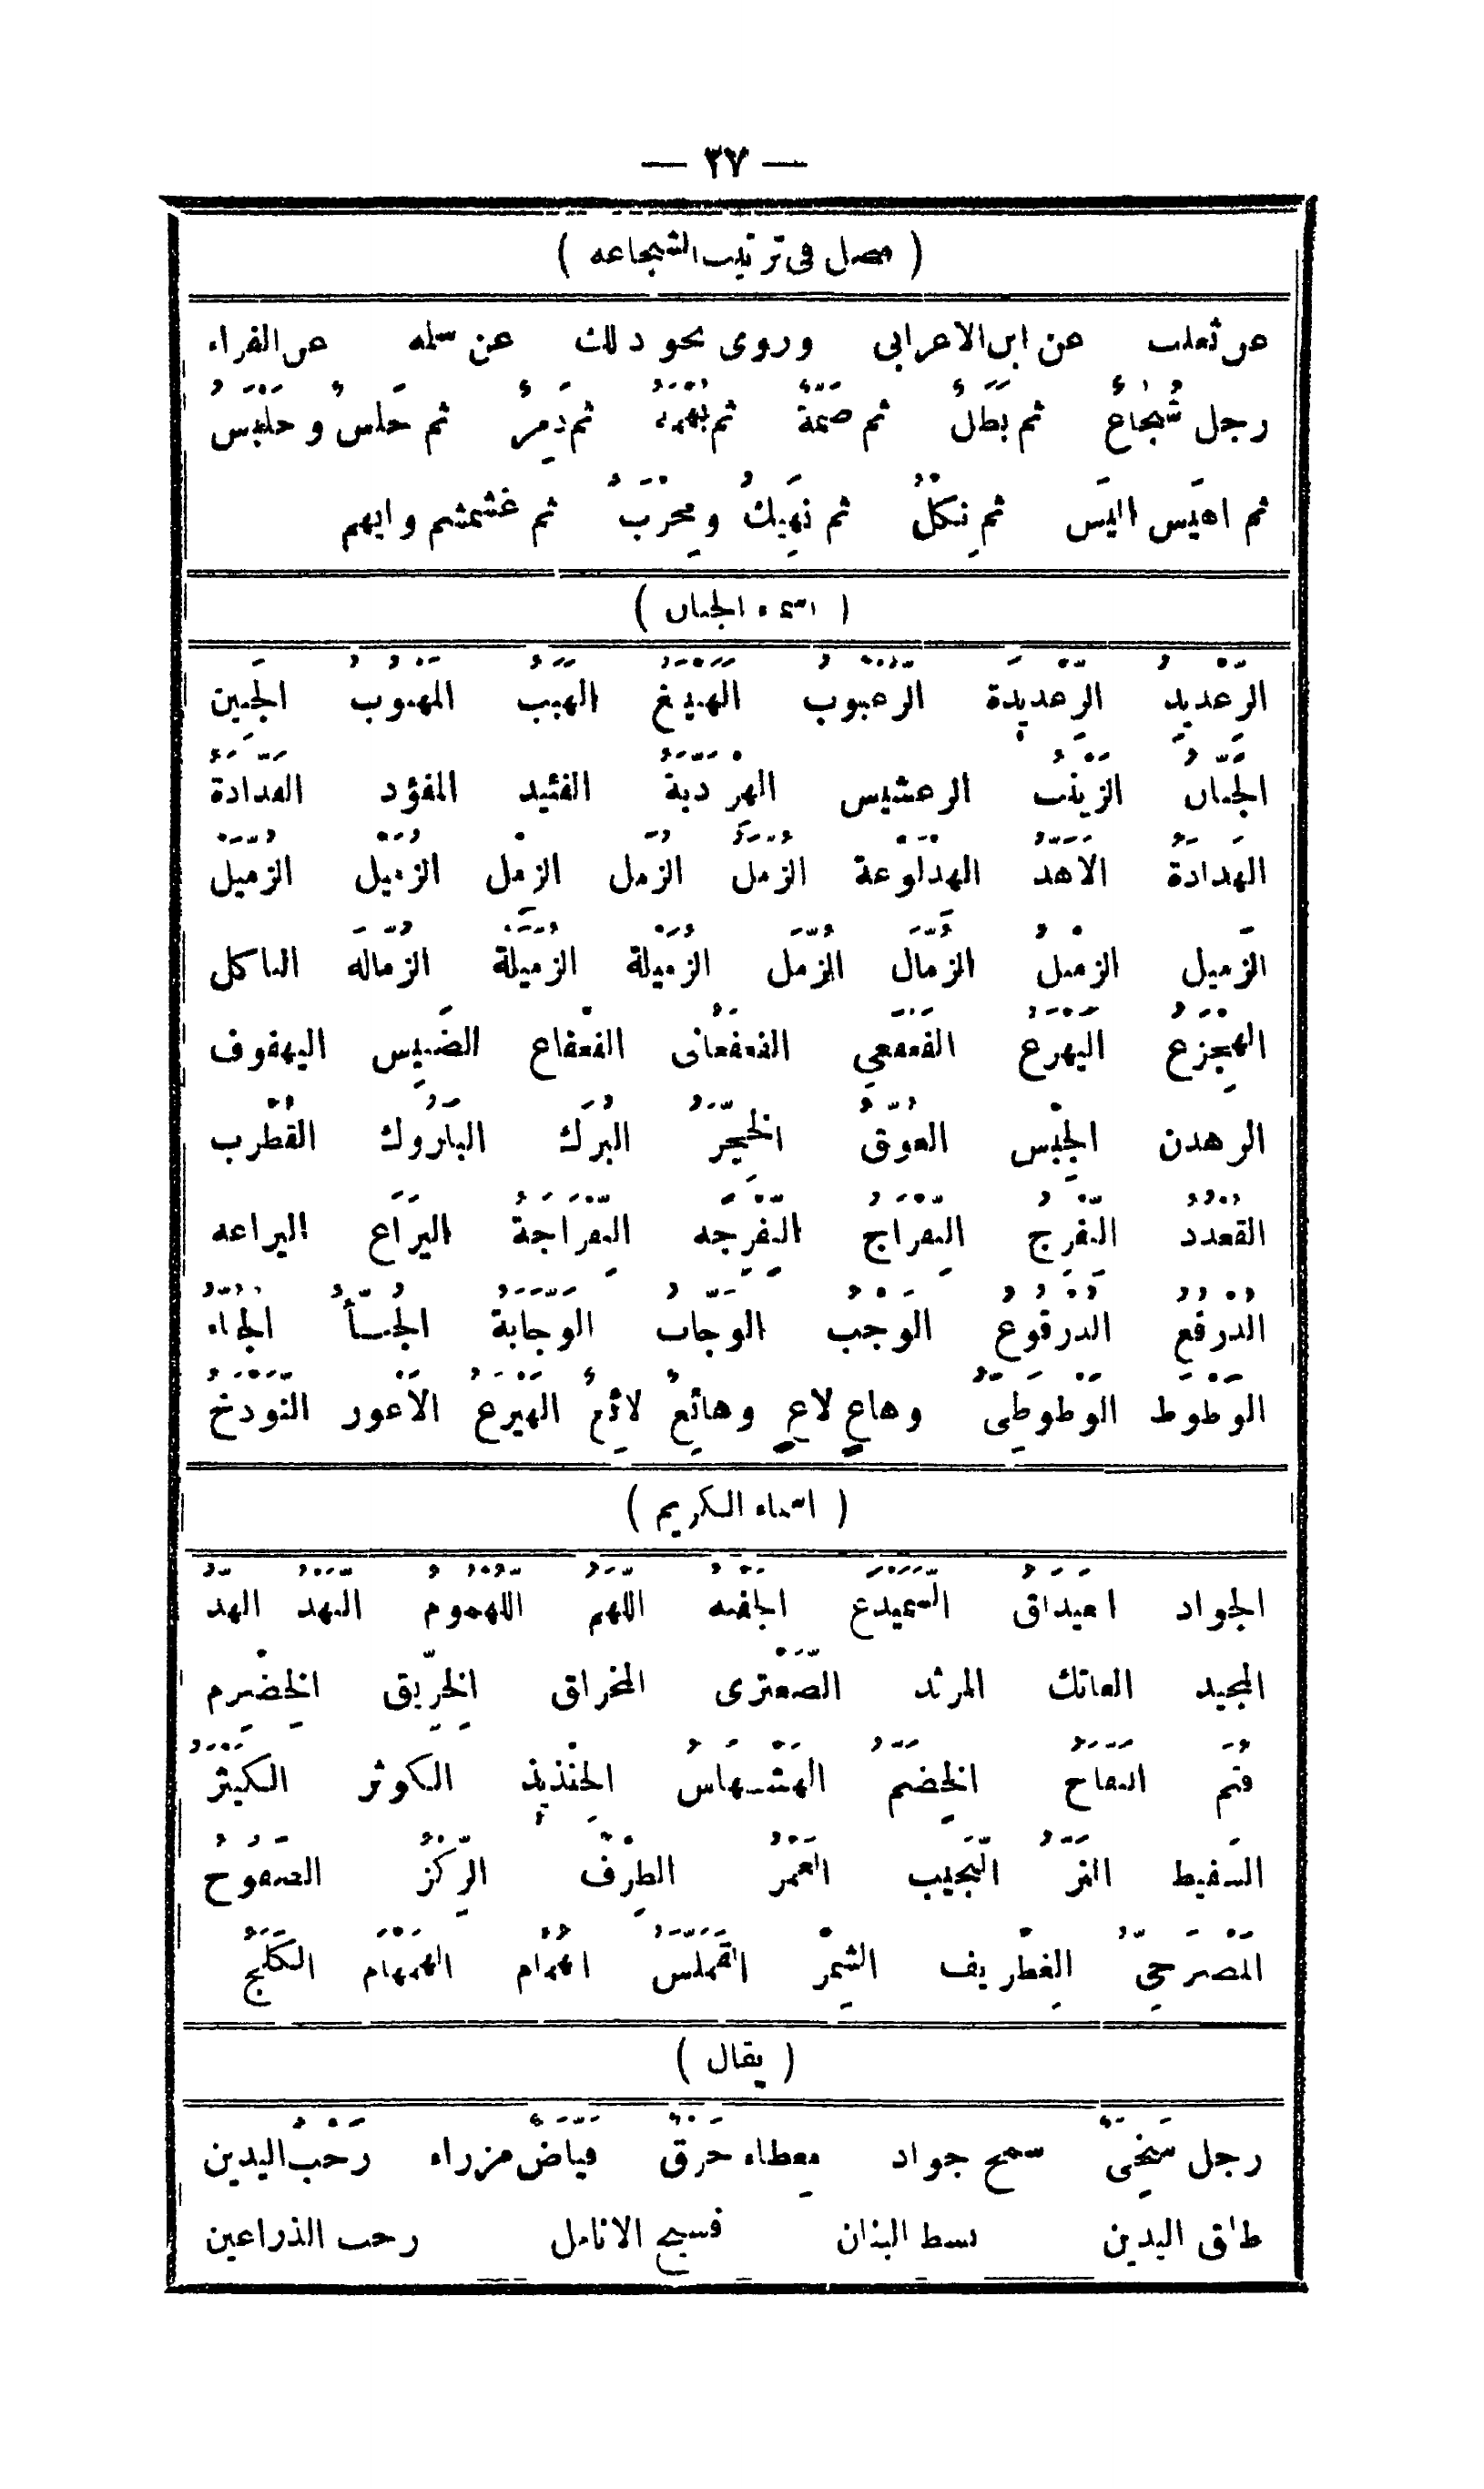 — ٣٧ —
( فصل فى ترتيب الشجاعه )
عن ثعلب عن ابن الاعرابى وروى نحو ذلك عن سلمه عن الفراء
رجل شُجَاعٌ ثم بَطَلٌ ثم صَمَّةٌ ثم بُهْمَةٌ ثم ذَمِرٌ ثم حَلسٌ و حَلْبَسٌ
ثم اهيَس اليَس ثم نِكْلٌ ثم نَهِيكٌ ومِحْرَبٌ ثم غشمشم وايهم
( اسماء الجبان )
الرِّعْديدِ الرِّعْديدَة الرّعْبُوبُ الهَيْدَغ الهَبَبُ المَهْبُوبُ الجَبِين
الجَبّانُ الزَيْنَبُ الرعشيس الهِرْدَبَّةُ الفئيد المفؤد الفَدّادَةُ
الهَدادَةُ الاَهَدّ الهدْلَوْعة الزُمَّلُ الزُمَل الزِمْل الزُمَيْل الزُمَّيْل
الزميل الزمْيل الزُمّال الزُمّل الزُمَيْلة الزُمَّيْلة الزُمّاله الناكل
الهِجْزَعُ اليَهْرَعُ الفَعْفَعِي الفعفعانى الفعْفاع الضَبِيس اليهفوف
الرهدن الجِبْس العُوَّقُ الجِيَّرُ البُرَك البَارُوك القُطْرب
القُعْدُدُ النِّفْرِجُ النِّفْرَاجُ النِّفْرِجَه النِّفْرَاجَةُ اليَرَاع اليراعه
الدُرْقُعُ الدُرْقُوعُ الوَجْبُ الوَجّابُ الوَجّابَةُ الجُبّأُ الجُبّاء
الوَطْوَط الوَطْوَطِىّ وهاعٍ لاعٍ وهائِعٌ لائِعٌ الهَيْرَعُ الاَعْور النَّوْدَخُ
( اسماء الكريم )
الجواد السَّمَيْدَع الجَفْنهُ اللّهَمُ اللُّهْمُومُ النَّهْدُ الهدّ
المجيد العاتك المرثد الصَّعْترى المخراق الخِرِّيق الخِضْرِم
قُثَم النَفّاحُ الخِضَمّ الهَشْهَاسُ الجِنْذيذِ الكوثر الكَيْثَرُ
السَفيط النَزّ النّجَيب الغَمْرُ الطِرْف الرِّكْزُ الصَفُوحُ
المَضْرَحِىّ الغِطْريف الشِمْر القَمَلّسُ الهُمام الهَمْهَام الكَلَجُ
( يقال )
رجل سَخِىٌّ سمح جواد مِعطاء خَرْقٌ فَيّاضٌ مزراء رَحْبُ اليدين
طلق اليدين بسط البنان فسيح الانامل رحب الذراعين